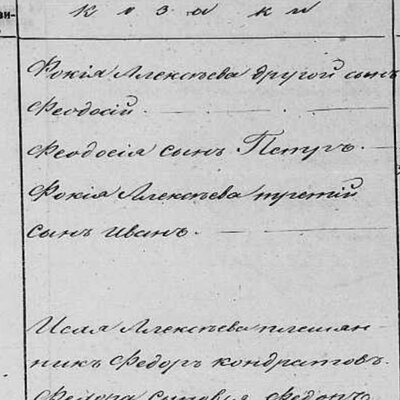 ви-
к о з а к и
Фокія Алексѣева другой сынъ
Феодосій.
Феодосія сынъ Петръ.
Фокія Алексѣева третій
сынъ Иванъ.
Исая Алексѣева племян-
никъ Федоръ Кондратовъ.
Федора сыновья Федоръ